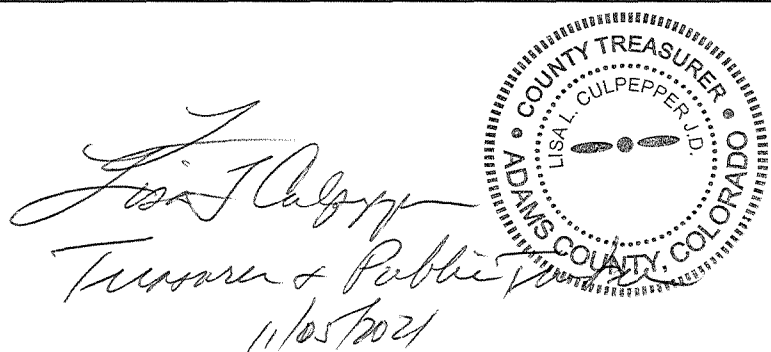 COUNTY TREASURER
LISA L. CULPEPPER J.D.
ADAMS COUNTY, COLORADO
Lisa L Culpepper
Treasurer & Public Trustee
11/05/2021